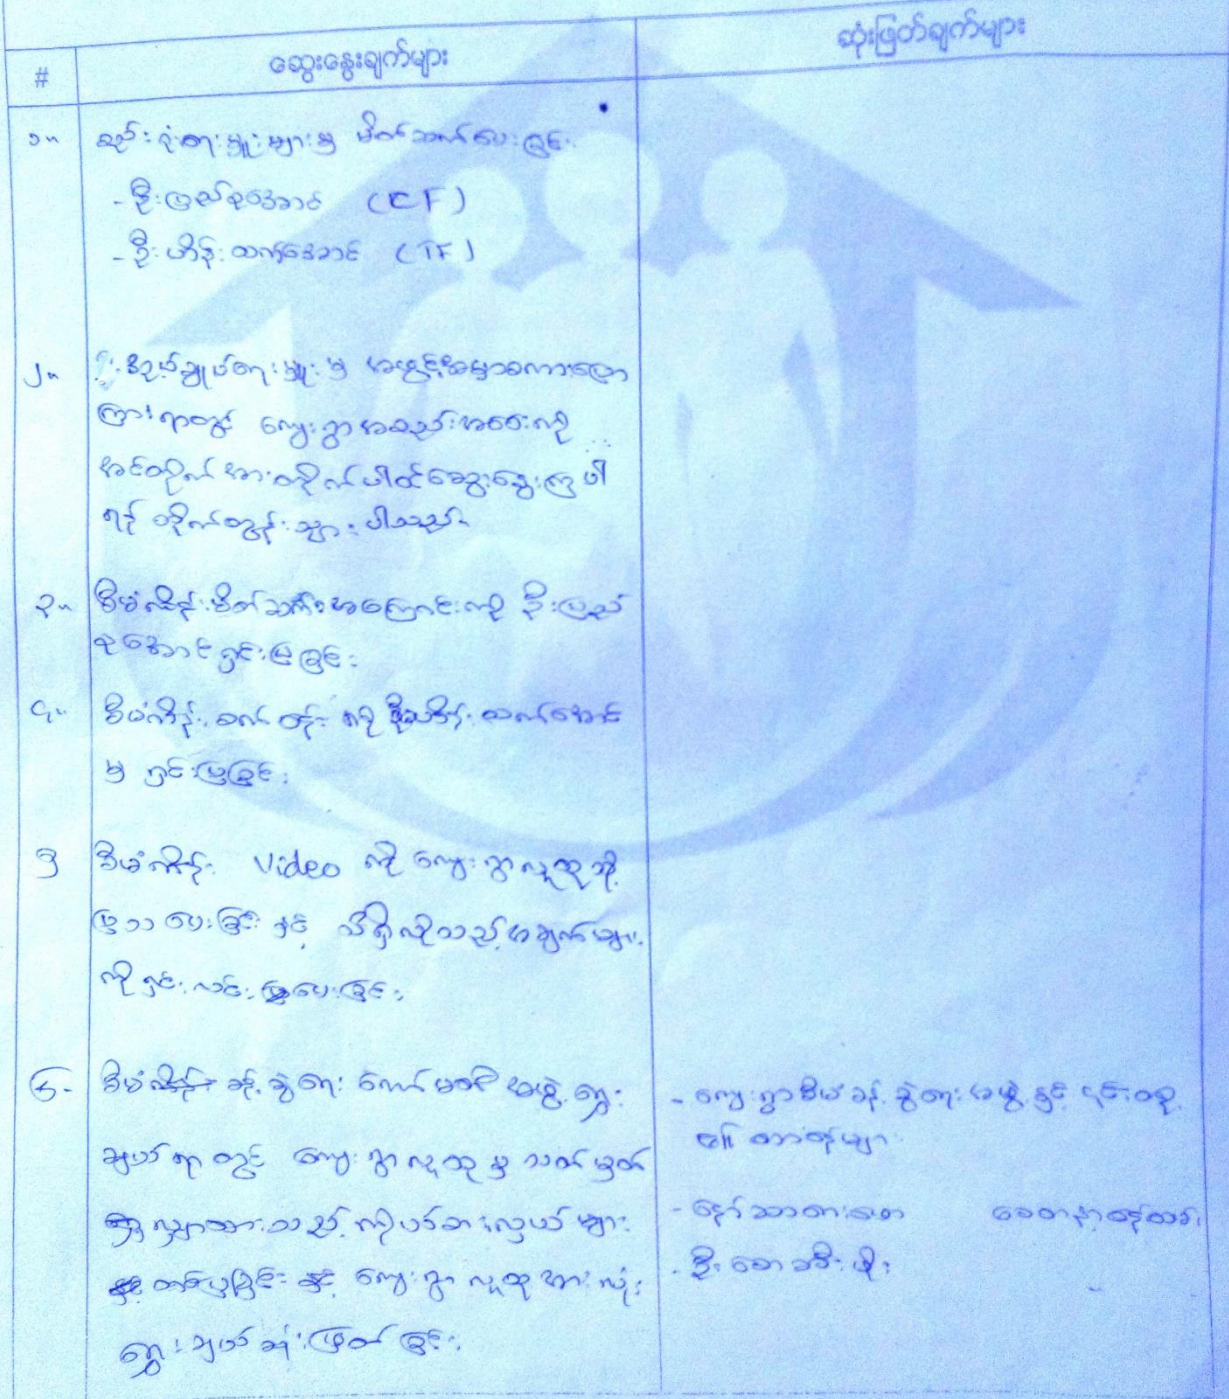 #
ဆွေးနွေးချက်များ
ဆုံးဖြတ်ချက်များ
၁။ စည်းရုံးရေးမှူးများမှ မိတ်ဆက်ပေးခြင်း
- ဦးပြည်စုအောင် (CF)
- ဦးဟိန်းထက်အောင် (TF)
၂။ အုပ်ချုပ်ရေးမှူးမှ အဖွင့်အမှာစကားပြော
ကြားရာတွင် ကျေးရွာအစည်းအဝေးကို
အင်တိုက်အားတိုက်ပါဝင်ဆွေးနွေးကြပါ
ရန် တိုက်တွန်းသွားပါသည်။
၃။ စီမံကိန်းမိတ်ဆက်အကြောင်းကို ဦးပြည်
စုအောင်ရှင်းပြခြင်း
၄။ စီမံကိန်းစက်ဝန်းကို ဦးဟိန်းထက်အောင်
မှ ရှင်းပြခြင်း
၅ စီမံကိန်း Video ကို ကျေးရွာလူထုသို့
ပြသပေးခြင်းနှင့် သိရှိလိုသည့်အချက်များ
ကိုရှင်းလင်းပြပေးခြင်း
၆- စီမံကိန်း ခန့်ခွဲရေးကော်မတီအဖွဲ့ရွေး
ချယ်ရာတွင် ကျေးရွာလူထုမှ သတ်မှတ်
လျာထားသည့် ကိုယ်စားလှယ်များ
နှင့် ကျေးရွာလူထုအားလုံး
ရွေးချယ်ဆုံးဖြတ်ခြင်း
- ကျေးရွာစီမံခန့်ခွဲရေးအဖွဲ့နှင့် ၎င်းတို့
၏ တာဝန်များ
- နော်သာတားစော စေတနာ့ဝန်ထမ်း
- ဦးစောအီးဖိုး